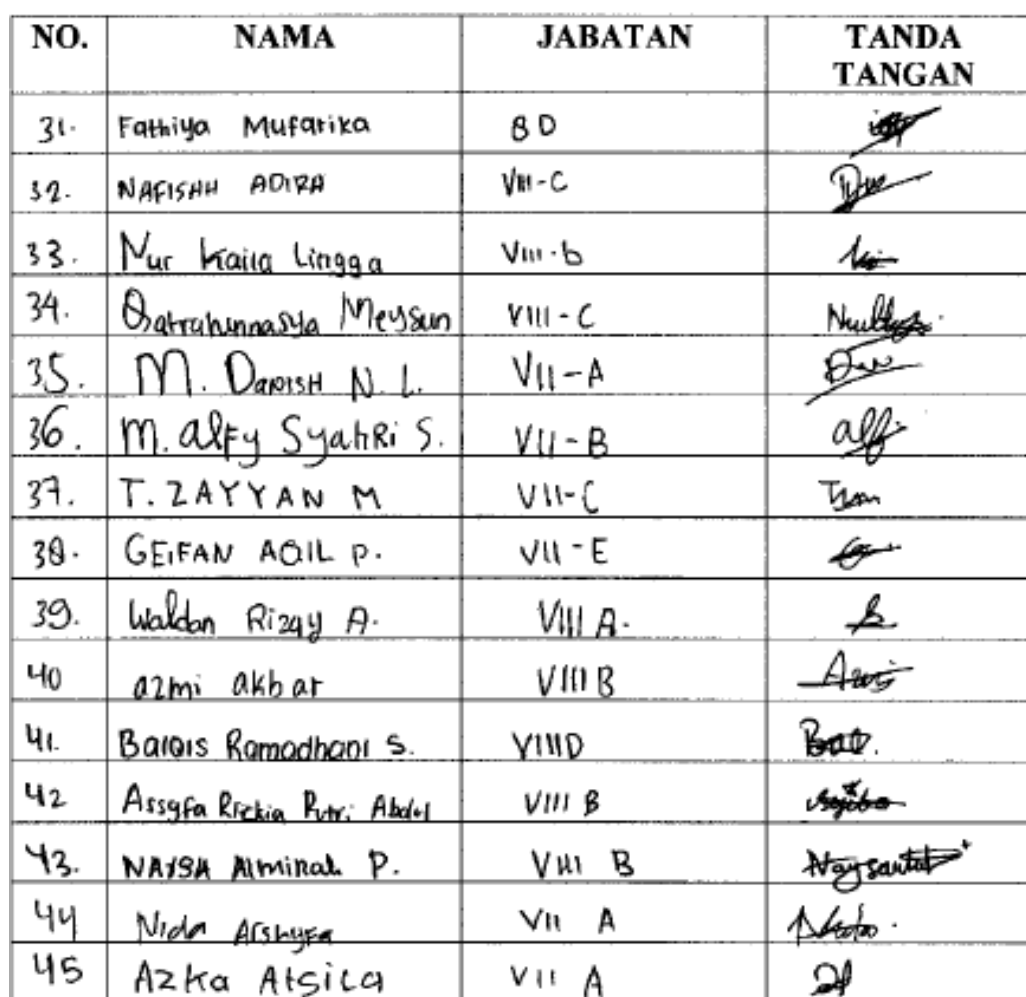 NO. NAMA JABATAN TANDA TANGAN
31. Fathiya Mufarika 8D
32. NAFISAH ADIRA VIII-C
33. Nur Kaila Lingga VIII-b
34. Qatrahunnasya Meysun VIII-C
35. M. DARISH N. L. VII-A
36. M. alfy SyahRi S. VII-B
37. T. ZAYYAN M VII-C
38. GEIFAN AQIL P. VII-E
39. Waldan Rizqy A. VIII A.
40 azmi akbar VIII B
41. Balqis Ramadhani S. VIIID
42 Assyfa Rizkia Putri Abdul VIII B
43. NAYSA Alminah P. VIII B
44 Nida Arshyfa VII A
45 Azka Atsila VII A